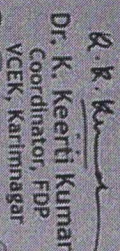 Dr. K. Keerti Kumar
Coordinator, FDP
VCEK, Karimnagar